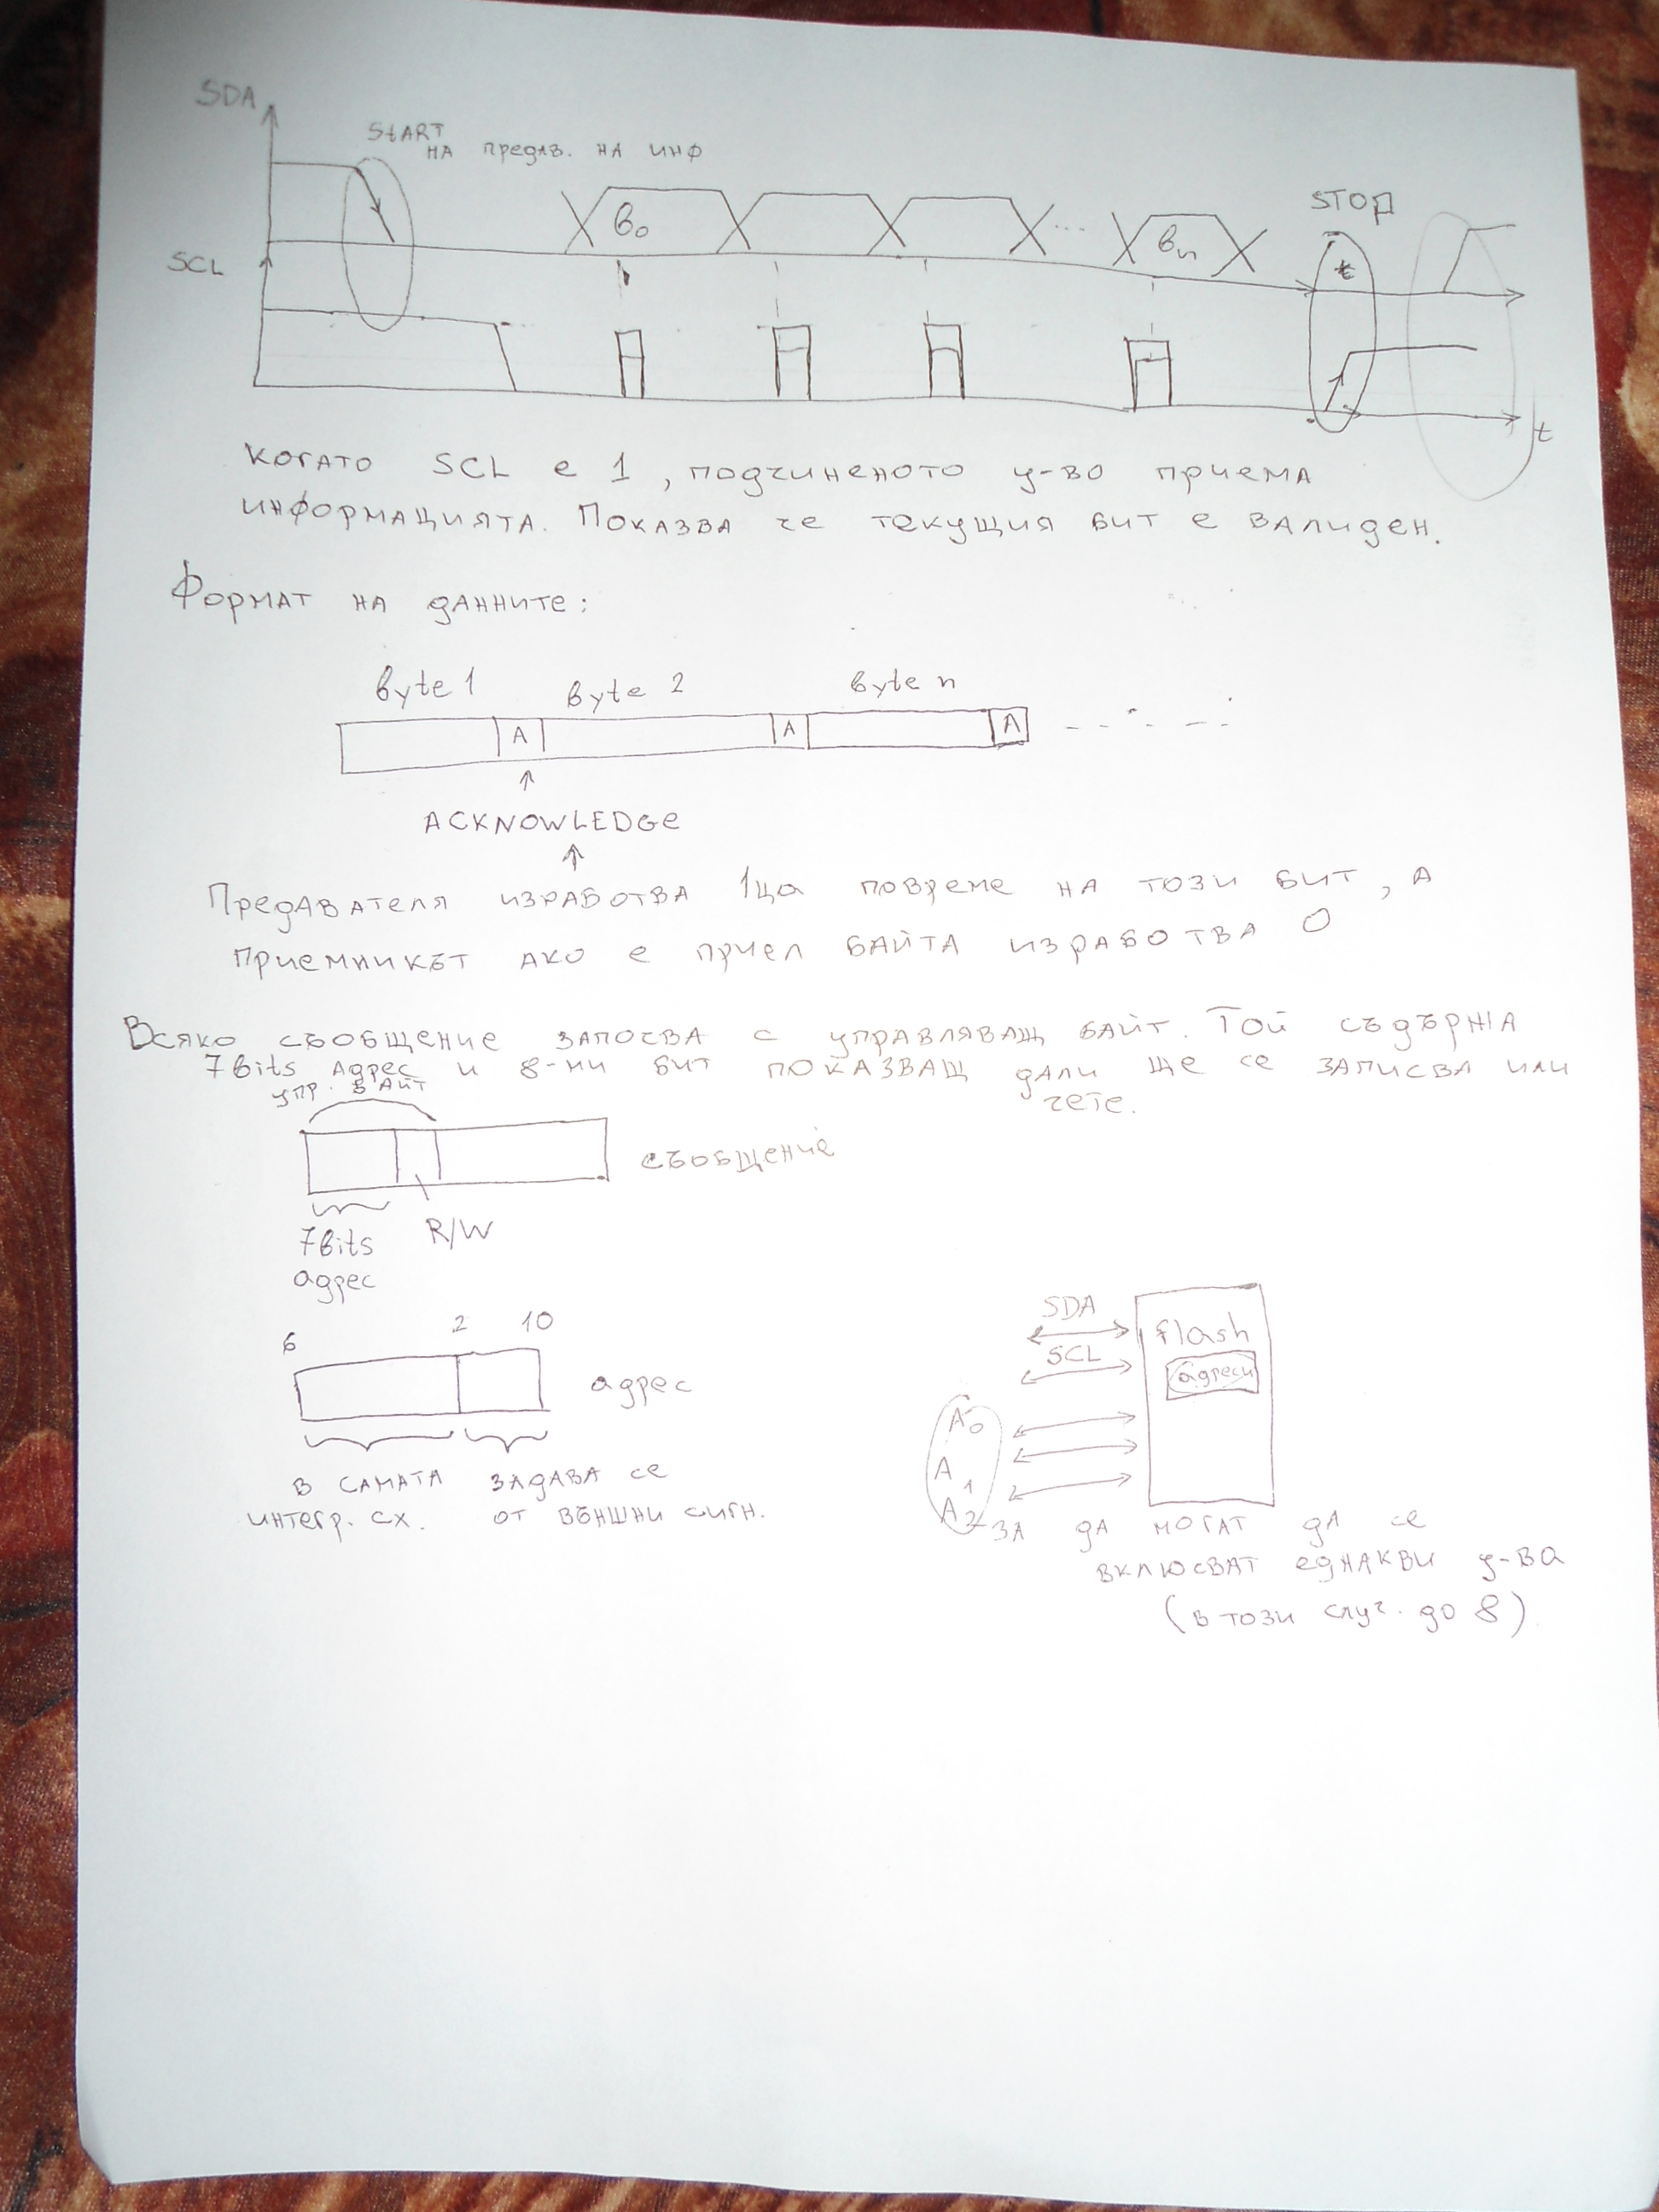 SDA
StART
НА предав. НА ИНФ
STOП
в₀
...
вn
t
SCL
t
КОГАТО SCL е 1, подчиненото у-во приема
ИНФОРМАЦИЯТА. ПОКАЗВА че текущия БИТ е ВАЛИДЕН.
ФОРМАТ НА ДАННИТЕ:
byte 1 byte 2 byte n
A A A
ACKNOWLEDGe
ПредАВАТеля изРАБОТВА 1ца повреме НА ТОЗИ БИТ, А
приемникът АКО е приел БАЙТА ИЗРАБОТВА 0
Всяко съобщение започва с управляващ БАЙТ. Той съдържа
7bits Адрес и 8-ми бит показващ дали ще се записва или
чете.
упр. БАЙТ
съобщение
7bits R/W
адрес
6 2 10
адрес
В САМАТА ЗАДАВА се
интегр. сх. от външни сигн.
SDA
SCL
flash
адреси
A0
A1
A2
ЗА ДА МОГАТ ДА се
включват еднакви у-ва
(в този случ. до 8)